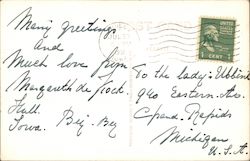 Many greetings
and
Much love from
Margareth de Kock.
Hull.
Iowa. Bij-Bij
To the lady: Ebbink
940 Eastern Ave
Grand-Rapids
Michigan
U.S.A.
1 CENT